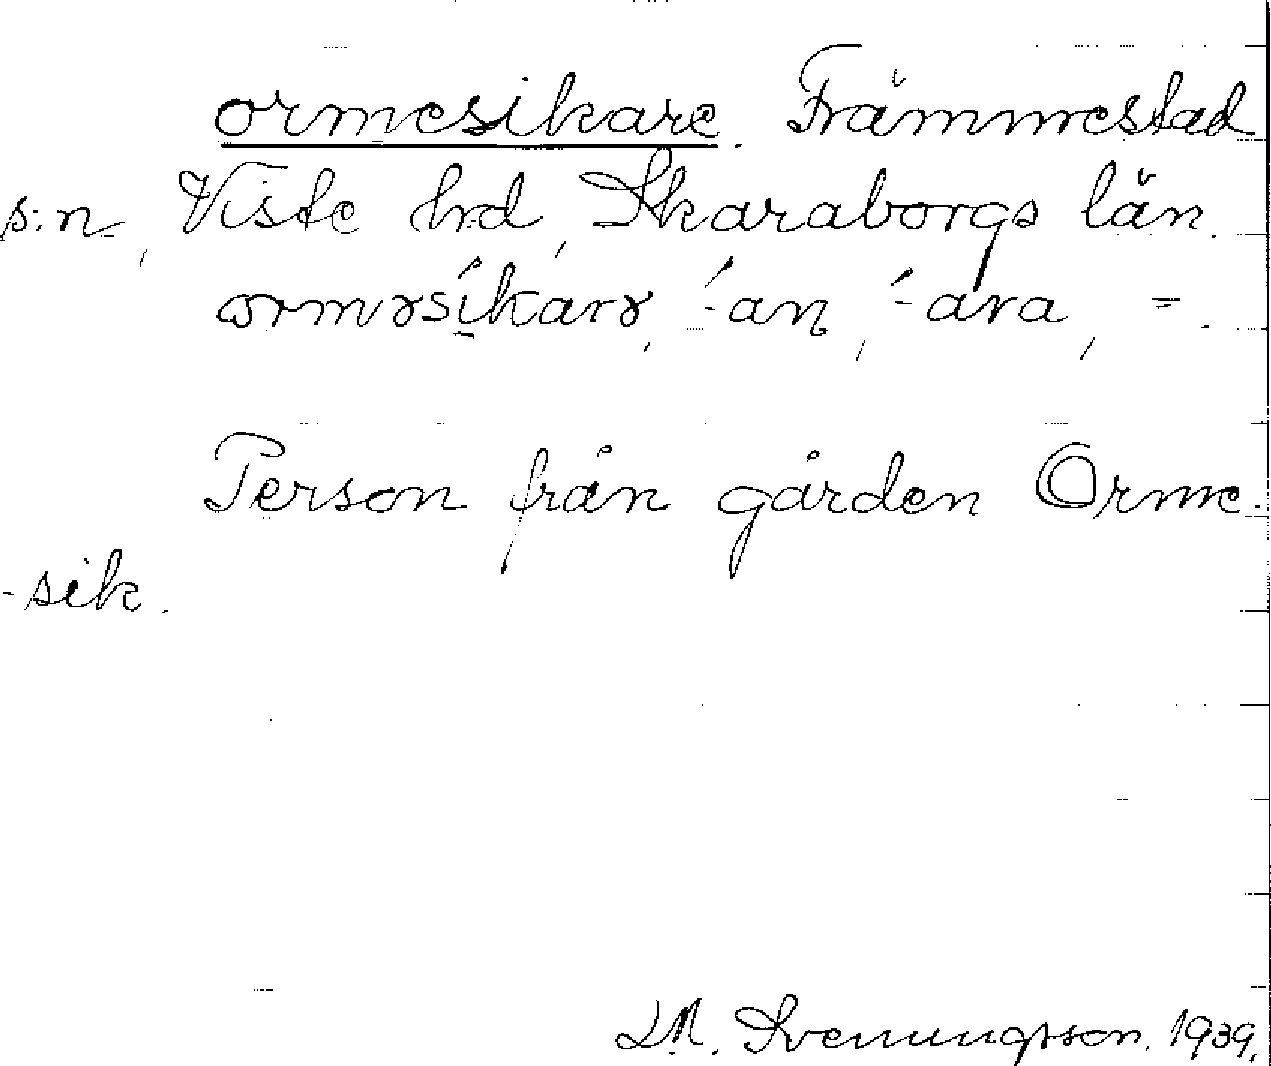 ormesikare. Främmestad
s:n, Viste hrd, Skaraborgs län.
ormɤsíkarɤ, ́-an, ́-ara, =.
Person från gården Orme-
-sik.
L.M. Svenungsson. 1939.